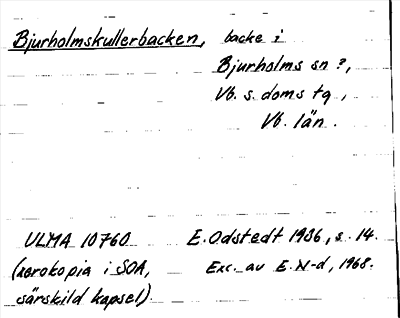 Bjurholmskullerbacken, backe i
Bjurholms sn ?,
Vb. s. doms tg,
Vb. län.
ULMA 10760 E. Odstedt 1936, s. 14.
(xerokopia i SOA, Exc. av E. N-d, 1968.
särskild kapsel).